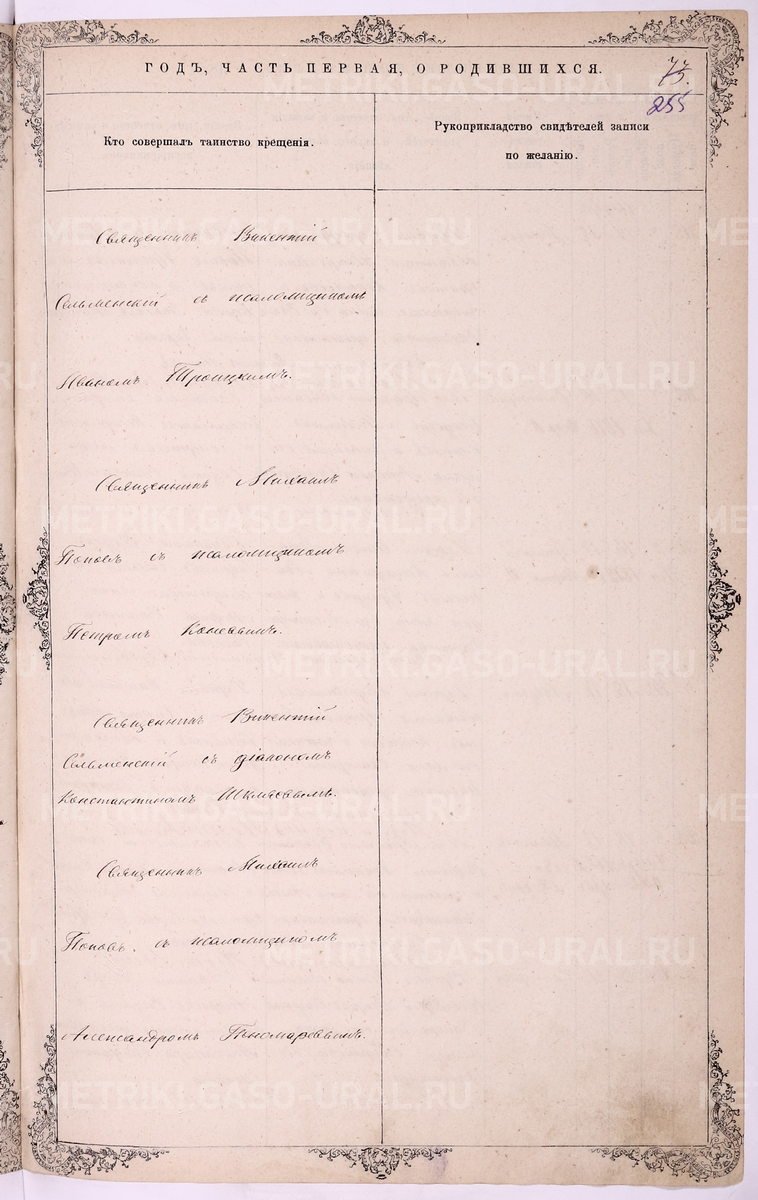 ГОДЪ, ЧАСТЬ ПЕРВАЯ, О РОДИВШИХСЯ.
255
Кто совершалъ таинство крещенія.
Рукоприкладство свидѣтелей записи
по желанію.
Священникъ Викентій
Сельменскій съ псаломщикомъ
Иваномъ Троицкимъ.
Священникъ Михаилъ
Поповъ съ псаломщикомъ
Петромъ
Священникъ Викентій
Сельменскій съ діакономъ
Константиномъ
Священникъ Михаилъ
Поповъ съ псаломщикомъ
Александромъ Пономаревымъ.
METRIKI.GASO-URAL.RU